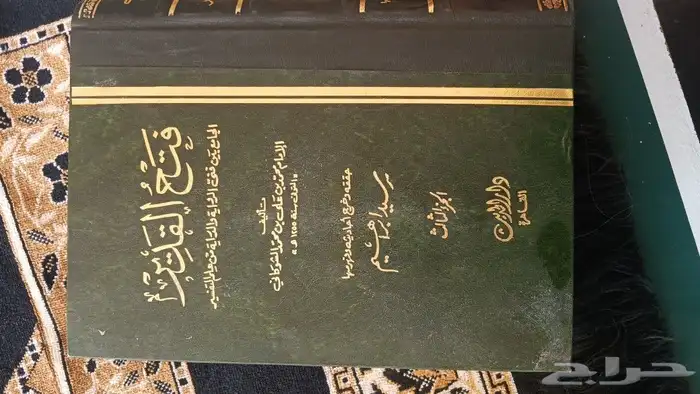 فتح القدير
الجامع بين فني الرواية والدراية من علم التفسير
تأليف
الإمام محمد بن علي بن محمد الشوكاني
المتوفى سنة ١٢٥٠ هـ
حققه وخرج أحاديثه وفهرسها
سيد إبراهيم
الجزء الثالث
دار الحديث
القاهرة
حراج